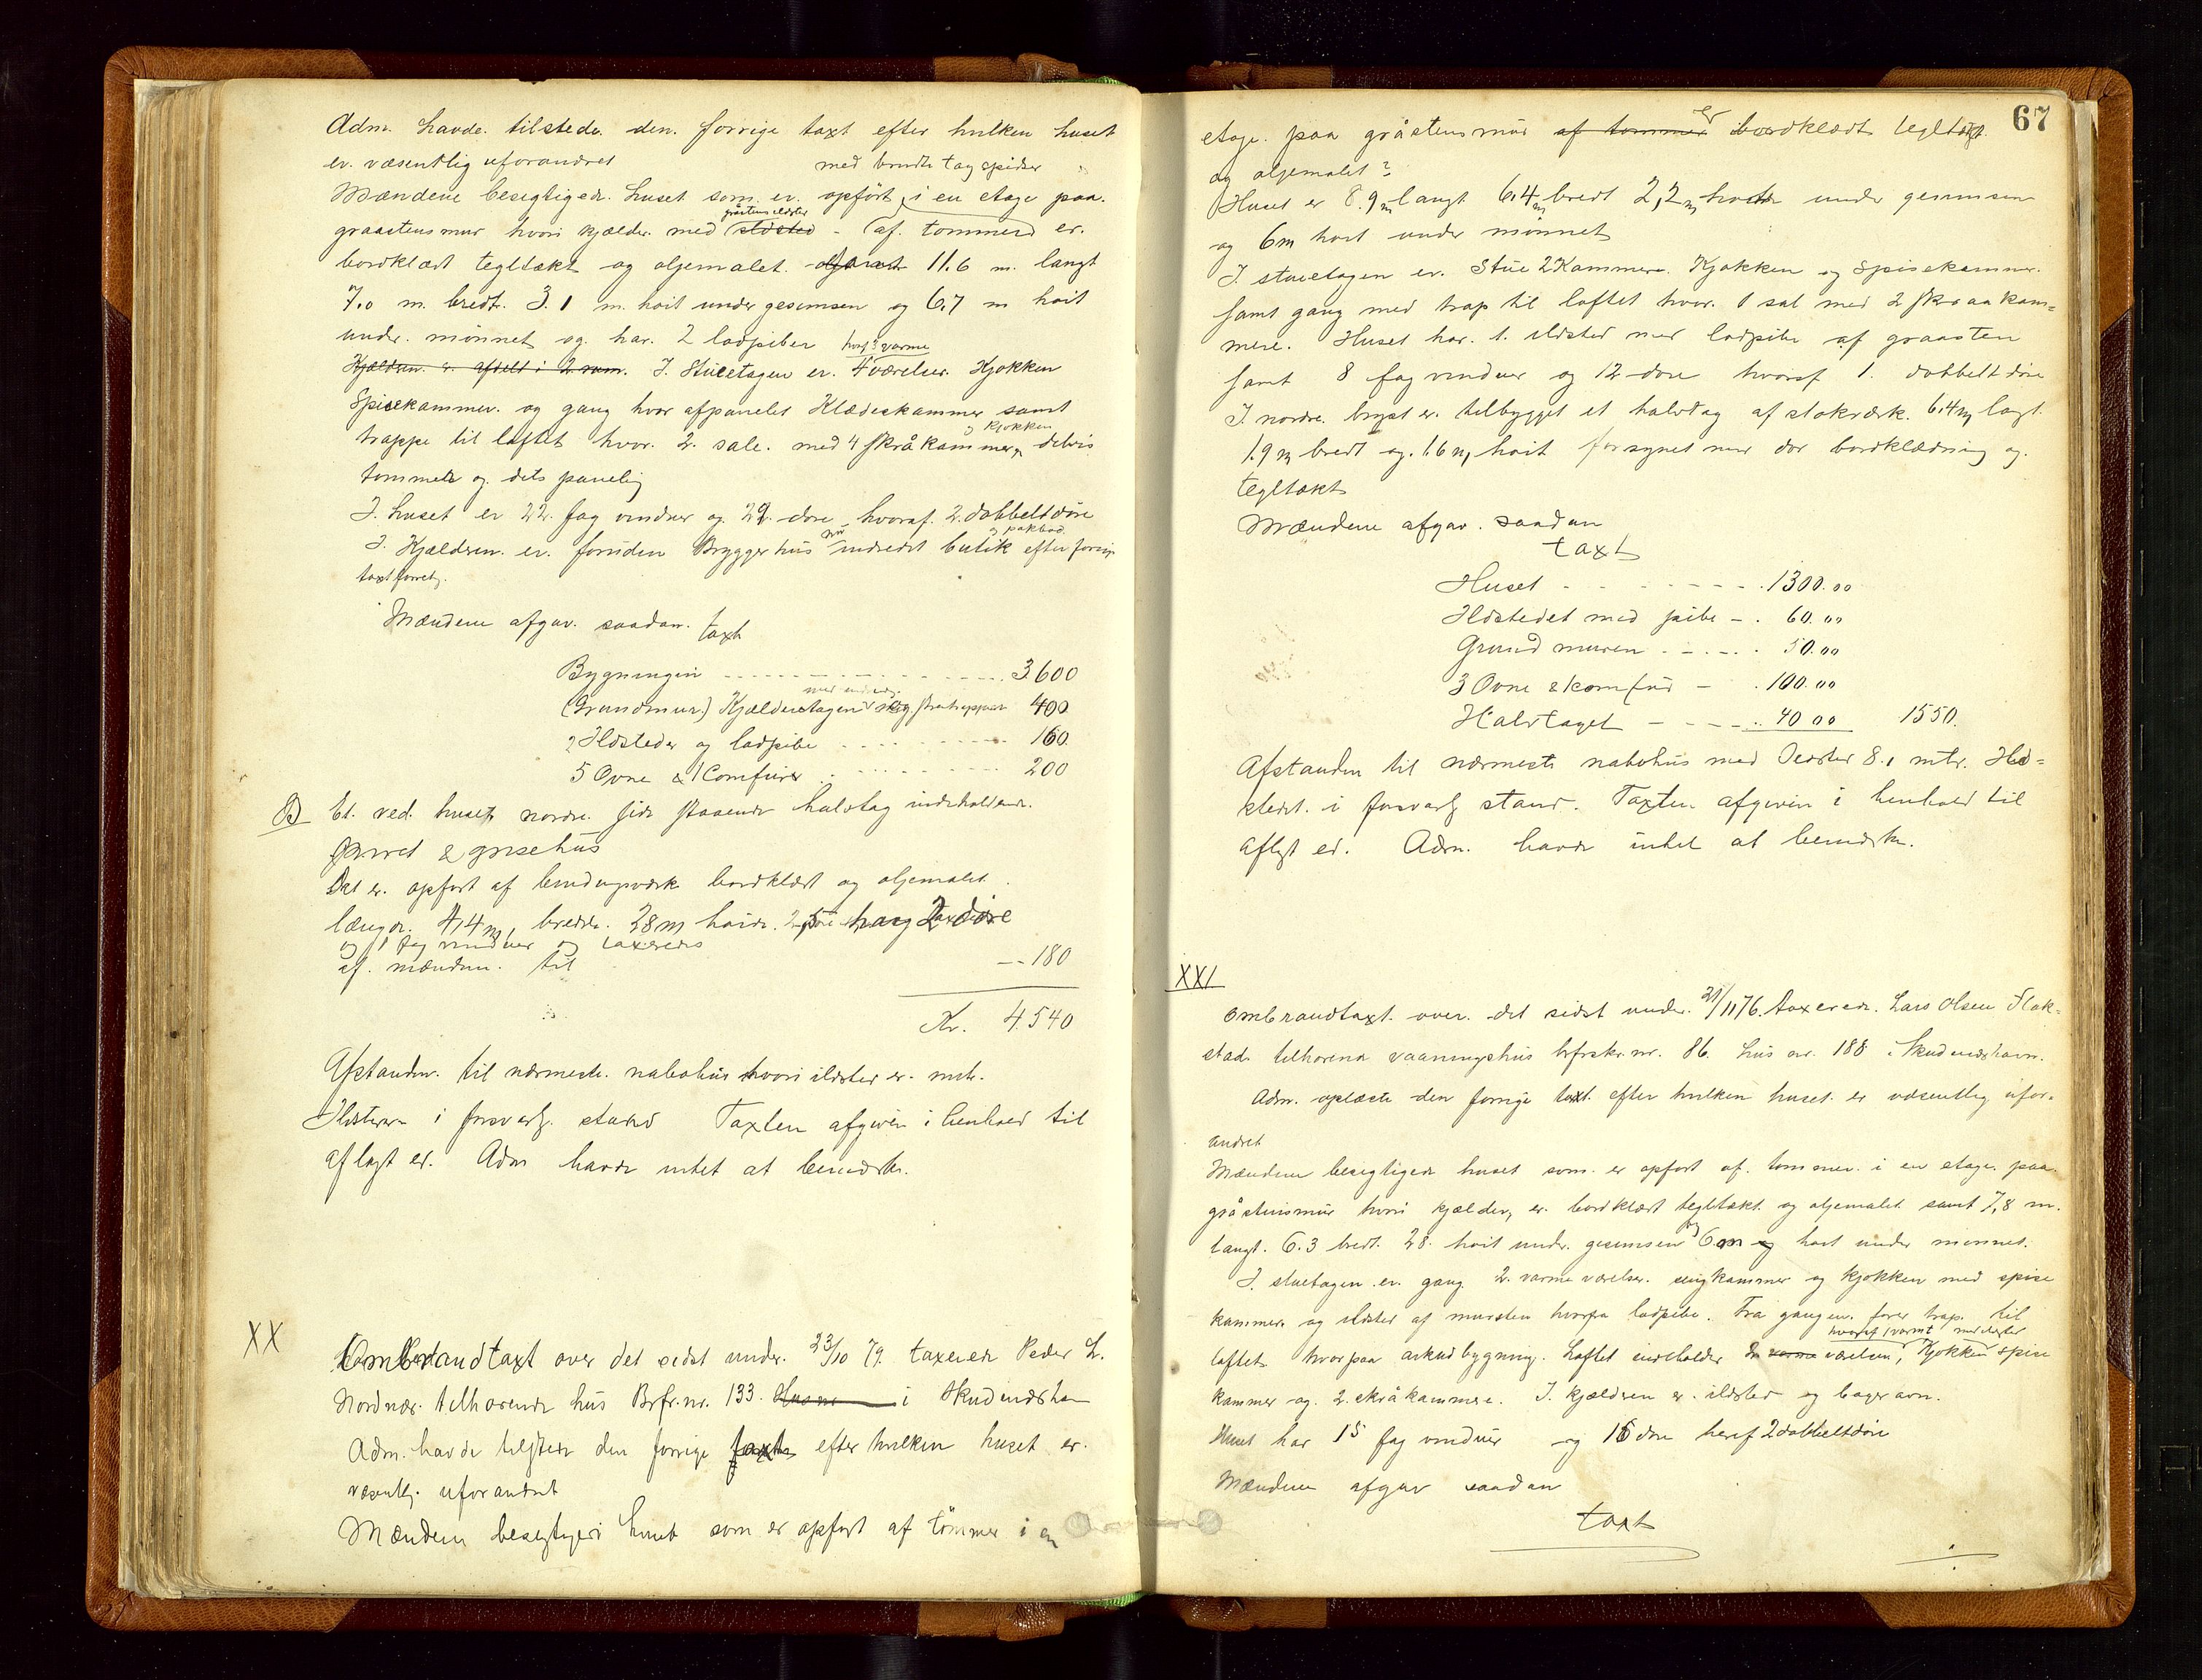 Adm. havde tilstede den forrige taxt efter hvilken huset
er væsentlig uforandret
med brudte tagspidser
Mændene besigtigede huset som er opført i en etage paa
graastensmur hvori kjælder med gråstensildsted ildsted - af tømmer er
bordklædt tegltækt og oljemalet 11.6 m. langt
7.0 m. bredt. 3.1 m. høit under gesimsen og 6.7 m høit
under mønnet og har 2 ladpiber
hvoraf 3 varme
Kjælderen er afdelt i 2 rum. I Stueetagen er 4 værelser Kjøkken
Spisekammer og gang hvor afpanelet Klædeskammer samt
trappe til loftet hvor 2 sale med 4 skråkammer og kjøkken delvis
tømmer og dels panelig
I huset er 22 fag vinduer og 29 døre hvoraf 2 dobbeltdøre
I Kjælderen er foruden Bryggerhus nu indredet butik og pakbod efter forrige
taxtforretg.
Mændene afgav saadan taxt
Bygningen 3600
(Grundmur) Kjælderetagen 400
2 Ildsteder og ladpibe 160
5 Ovne & 1 Comfurer 200
B) Et ved husets nordre side staaende halvtag indeholdende
Privet & grisehus
Det er opført af bindingsværk bordklædt og oljemalet
længde 4,4 m, bredde 2.8 m høide 2,5 har 2 døre
og 1 fag vinduer og taxeredes
af mændene til 180
Kr. 4540
Afstanden til nærmeste nabohus hvori ildsted er mtr.
Ildstederne i forsvarlg. stand Taxten afgiven i henhold til
aflagt ed. Adm havde intet at bemærke.
XX
Ombrandtaxt over det sidst under 23/10 79 taxerede Peder L.
Nordnæs tilhørende hus Brfr.nr. 133. Hus no i Skudeneshavn
Adm. havde tilstede den forrige taxt efter hvilken huset er
væsentlg. uforandret
Mændene besigtigede huset som er opført af tömmer i en
67
etage paa gråstensmur af tømmer er bordklædt tegltægt
og oljemalet
Huset er 8.9 m langt 6.4 m bredt 2,2 m høit under gesimsen
og 6 m høit under mønnet
I stueetagen er Stue 2 Kammere Kjøkken og Spisekammer
samt gang med trap til loftet hvor 1 sal med 2 skraakam=
mere. Huset har 1 ildsted med ladpibe af graasten
samt 8 fag vinduer og 12 døre hvoraf 1 dobbelt døre
I nordre bryst er tilbygget et halvtag af stakværk 6.4 m langt
1.9 m bredt og 1.6 m høit forsynet med dør bordklædning og
tegltækt
Mændene afgav saadan
taxt
Huset 1300.00
Ildstedet med pibe 60.00
Grundmuren 50.00
3 Ovne & komfur 100.00
Halvtaget 40 00 1550.
Afstanden til nærmeste nabohus med Ildsted 8.1 mtr. Ild=
stedet i forsvarlg stand. Taxten afgiven i henhold til
aflagt ed. Adm. havde intet at bemærke.
XXI
Ombrandtaxt over det sidst under 21/11 76 taxerede Lars Olsen Flak=
stad tilhørende vaaningshus brfrskr.nr. 86 hus nr. 188 i Skudeneshavn.
Adm. oplæste den forrige taxt efter hvilken huset er væsentlig ufor=
andret
Mændene besigtigede huset som er opført af tømmer i en etage paa
gråstensmur hvori kjælder, er bordklædt tegltækt og oljemalet samt 7,8 m.
langt. 6.3 bredt 2.8 høit under gesimsen og 6 m høit under mønnet.
I stueetagen er gang 2 varme værelser sengkammer og kjøkken med spise
kammer og ildsted af mursten hvorfra ladpibe. Fra gangen fører trap til
loftet hvorpaa arkudbygning. Loftet indeholder 2 varme værelser, hvoraf 1 varmt Kjøkken med ildsted spise
kammer og 2 skråkammere. I kjælderen er ildsted og bagerovn.
Huset har 15 fag vinduer og 16 døre heraf 2 dobbeltdøre
Mændene afgav saadan
taxt